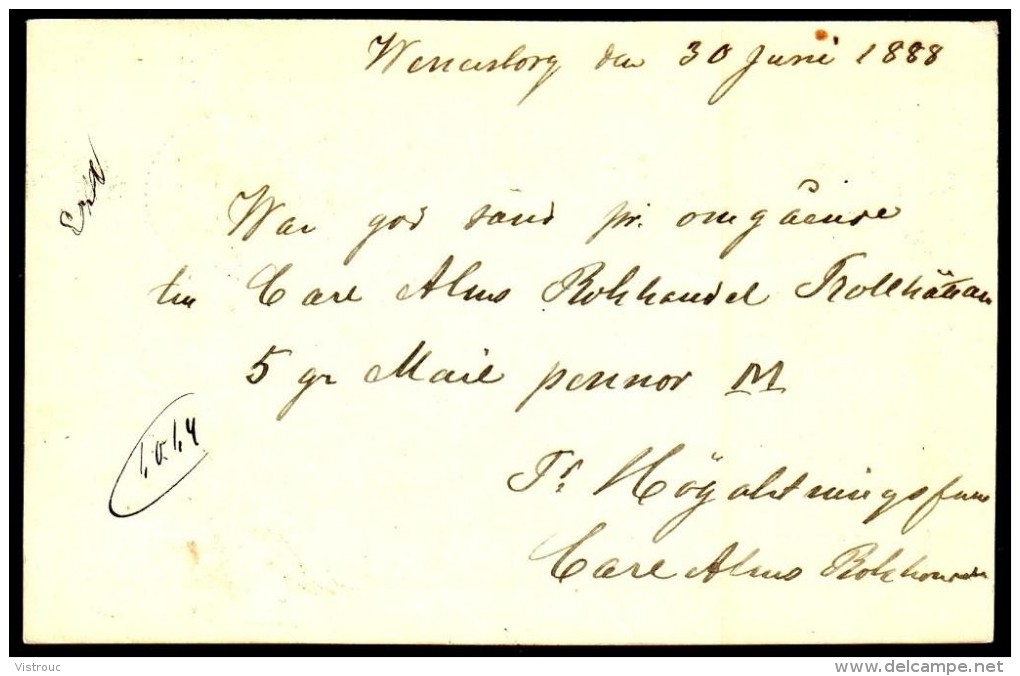 Wenersborg den 30 Juni 1888
War god sänd pr. omgående
till Carl Alms Bokhandel Trollhättan
5 gr Mail pennor M
1,01,4
Högaktningsfull
Carl Alms Bokhandel
Vistrouc
http://www.delcampe.net